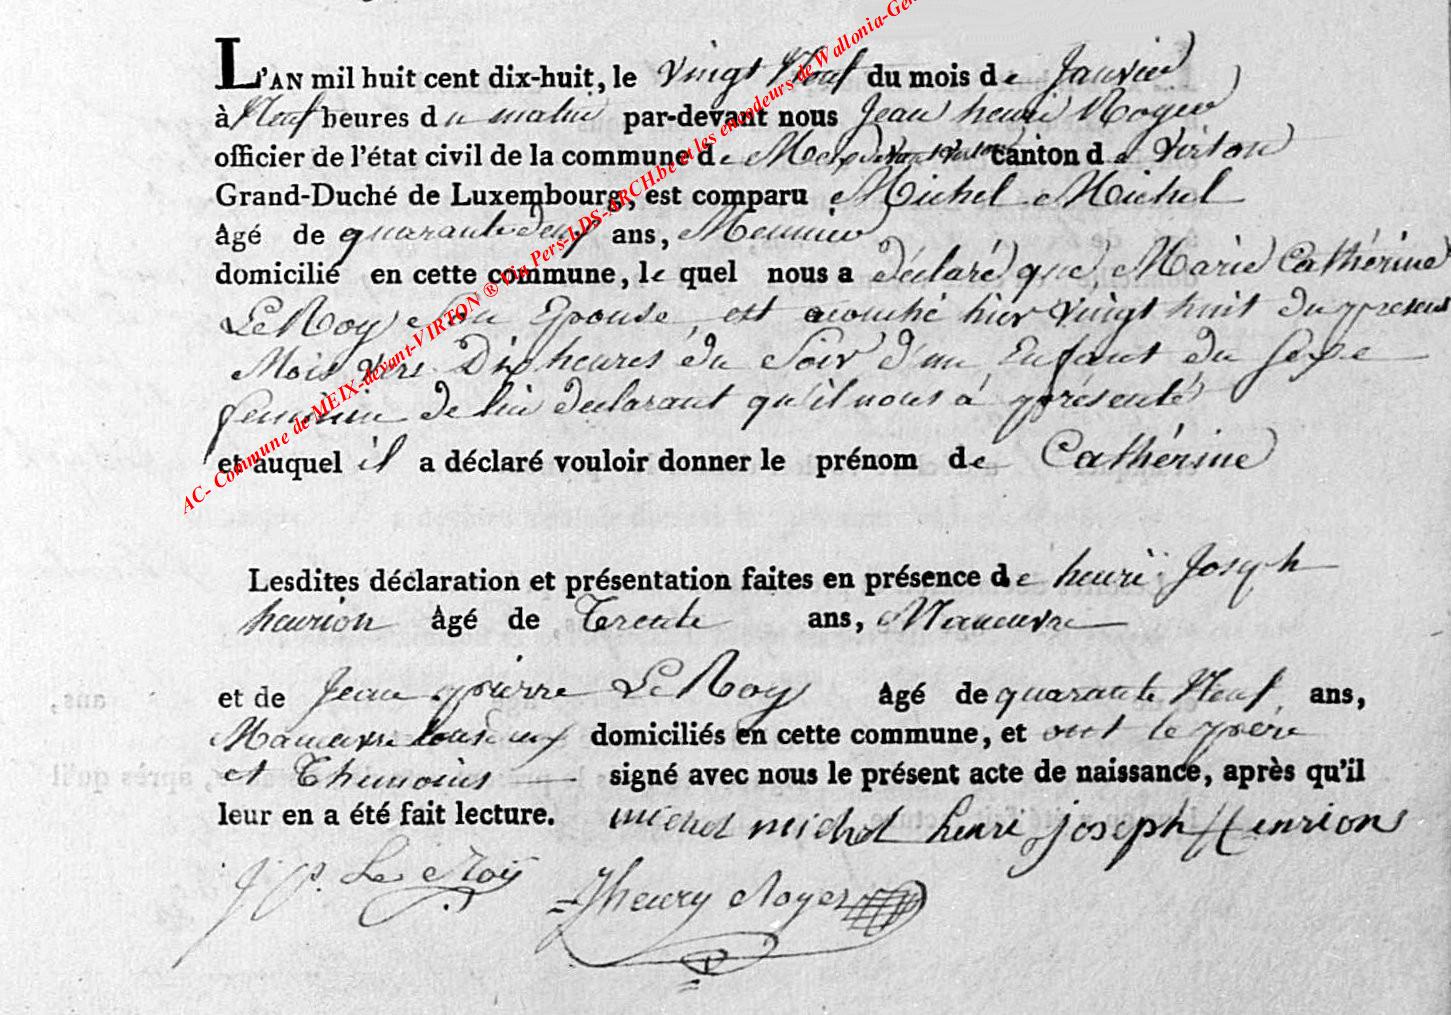 L'AN mil huit cent dix-huit, le vingt Neuf du mois de Janvier
à Neuf heures du matin par-devant nous Jean henri Royer
officier de l'état civil de la commune de Meix devant virton canton de Virton
Grand-Duché de Luxembourg, est comparu Michel Michel
âgé de quarante deux ans, Meunier
domicilié en cette commune, le quel nous a déclaré que Marie Cathérine
Le Roy sa Epouse, est acouché hier vingt huit du present
Mois vers Dix heures du Soir d'un Enfant du Sexe
feminin de lui declarant qu'il nous à présenté
et auquel il a déclaré vouloir donner le prénom de Cathérine
Lesdites déclaration et présentation faites en présence de henri Joseph
henrion âgé de Trente ans, Maneuvre
et de Jean pierre Le Roy âgé de quarante Neuf ans,
Maneuvre tous deux domiciliés en cette commune, et ont le père
et Themoins signé avec nous le présent acte de naissance, après qu'il
leur en a été fait lecture. michel michel henri joseph Henrion
J P. Le Roy Jhenry Royer
AC- Commune de MEIX-devant-VIRTON ® Via Pers-LDS-ARCH.be et les encodeurs de Wallonia-Gen